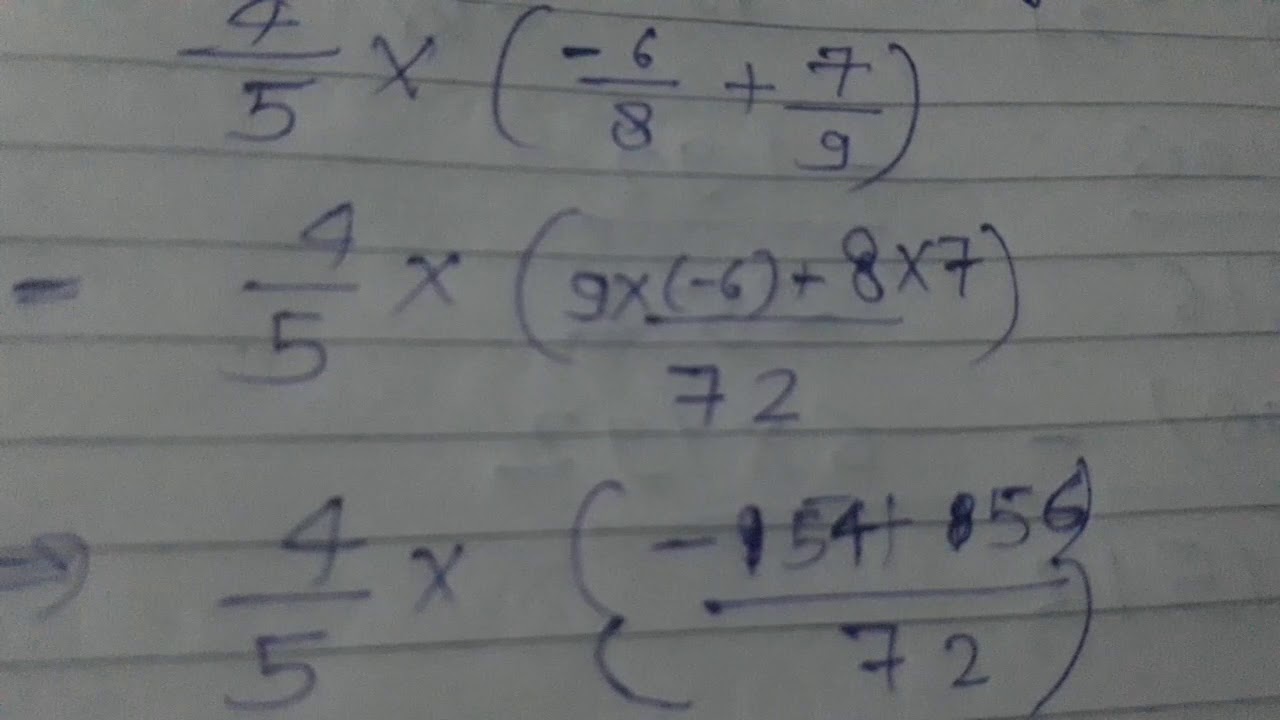 4/5 × (-6/8 + 7/9)
- 4/5 × (9×(-6)+8×7)/72
→ 4/5 × (-54+56)/72